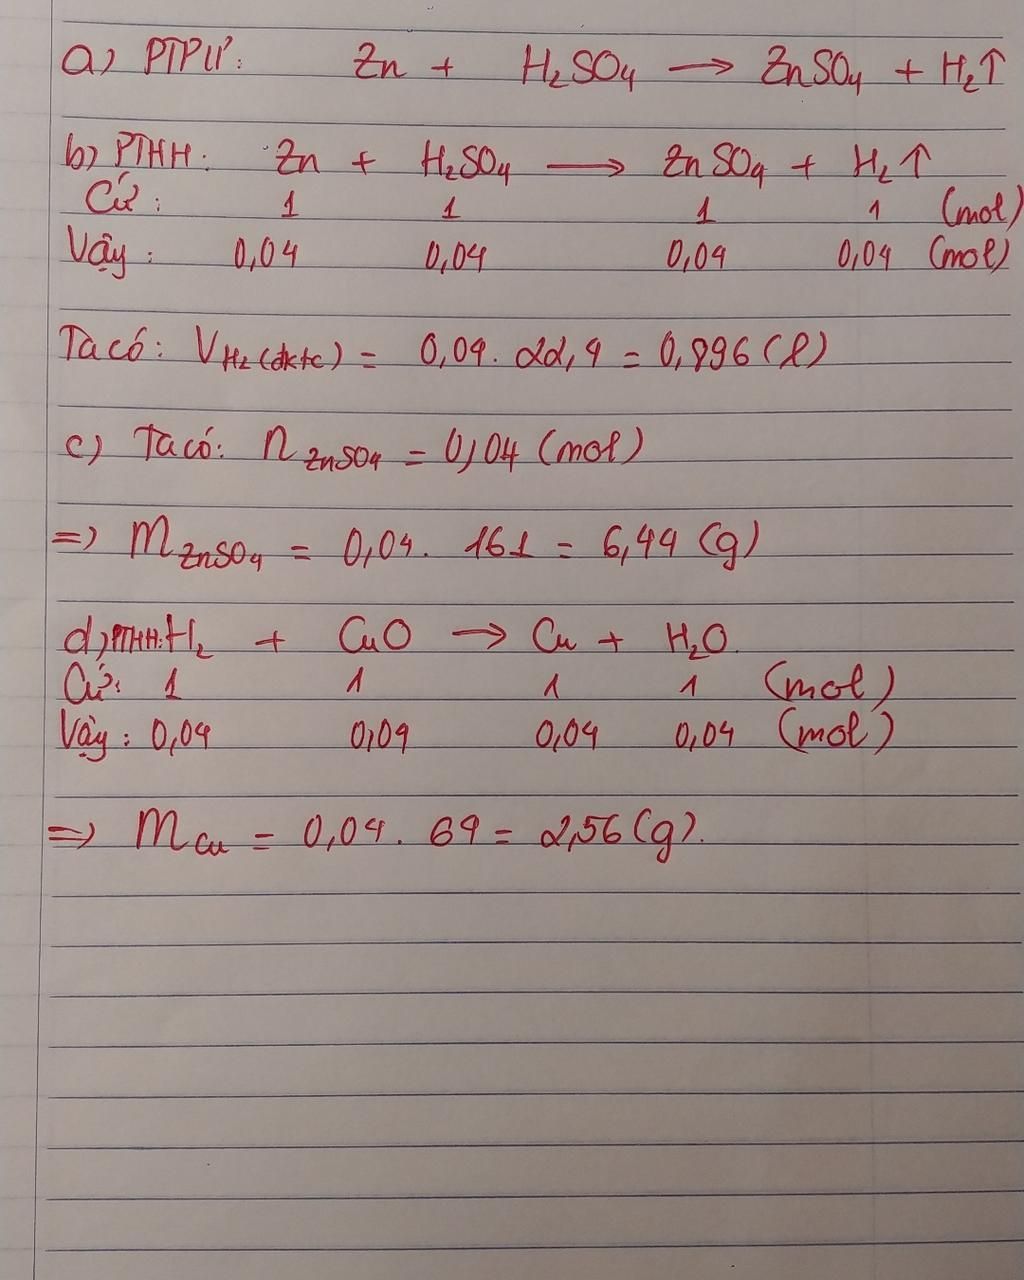 a) PTPƯ: Zn + H₂SO₄ → ZnSO₄ + H₂↑
b) PTHH: Zn + H₂SO₄ → ZnSO₄ + H₂↑
Cứ: 1 1 1 1 (mol)
Vậy: 0,04 0,04 0,04 0,04 (mol)
Ta có: V H₂ (đktc) = 0,04. 22,4 = 0,896 (l)
c) Ta có: n ZnSO₄ = 0,04 (mol)
=> m ZnSO₄ = 0,04. 161 = 6,44 (g)
d) PTHH: H₂ + CuO → Cu + H₂O.
Cứ: 1 1 1 1 (mol)
Vậy: 0,04 0,04 0,04 0,04 (mol)
=> m Cu = 0,04. 64 = 2,56 (g).